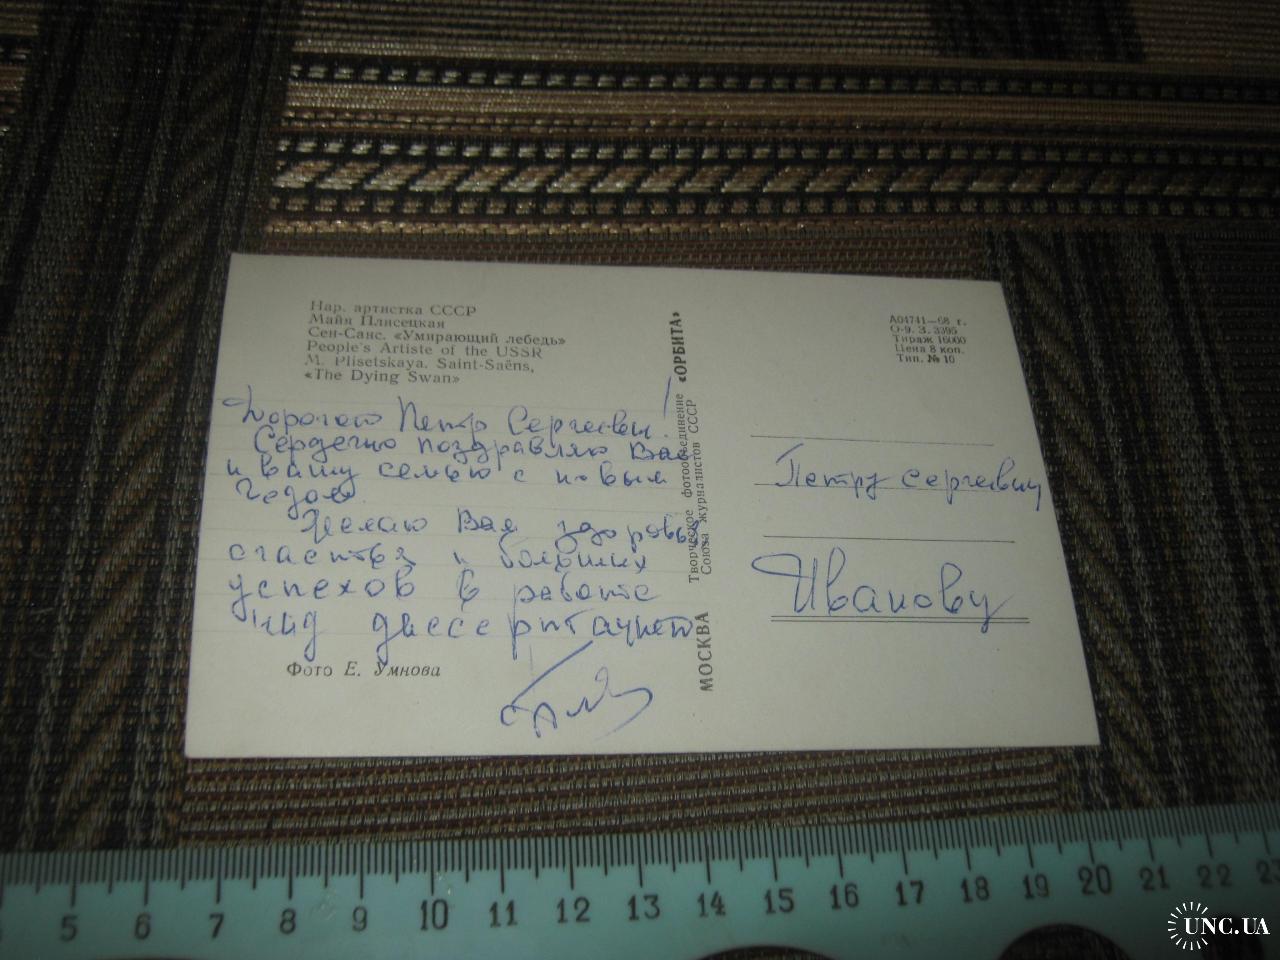 Нар. артистка СССР
Майя Плисецкая
Сен-Санс. «Умирающий лебедь»
People's Artiste of the USSR
M. Plisetskaya. Saint-Saëns,
«The Dying Swan»
Дорогой Петр Сергеевич!
Сердечно поздравляю Вас
и вашу семью с новым
годом.
Желаю Вам здоровья
счастья и больших
успехов в работе
над диссертацией
Фото Е. Умнова
МОСКВА
Творческое фотообъединение «ОРБИТА»
Союза журналистов СССР
А04741—68 г.
О-9. З. 3395
Тираж 16000
Цена 8 коп.
Тип. № 10
Петру Сергеевичу
Иванову
5 6 7 8 9 10 11 12 13 14 15 16 17 18 19 20 21 22
UNC.UA